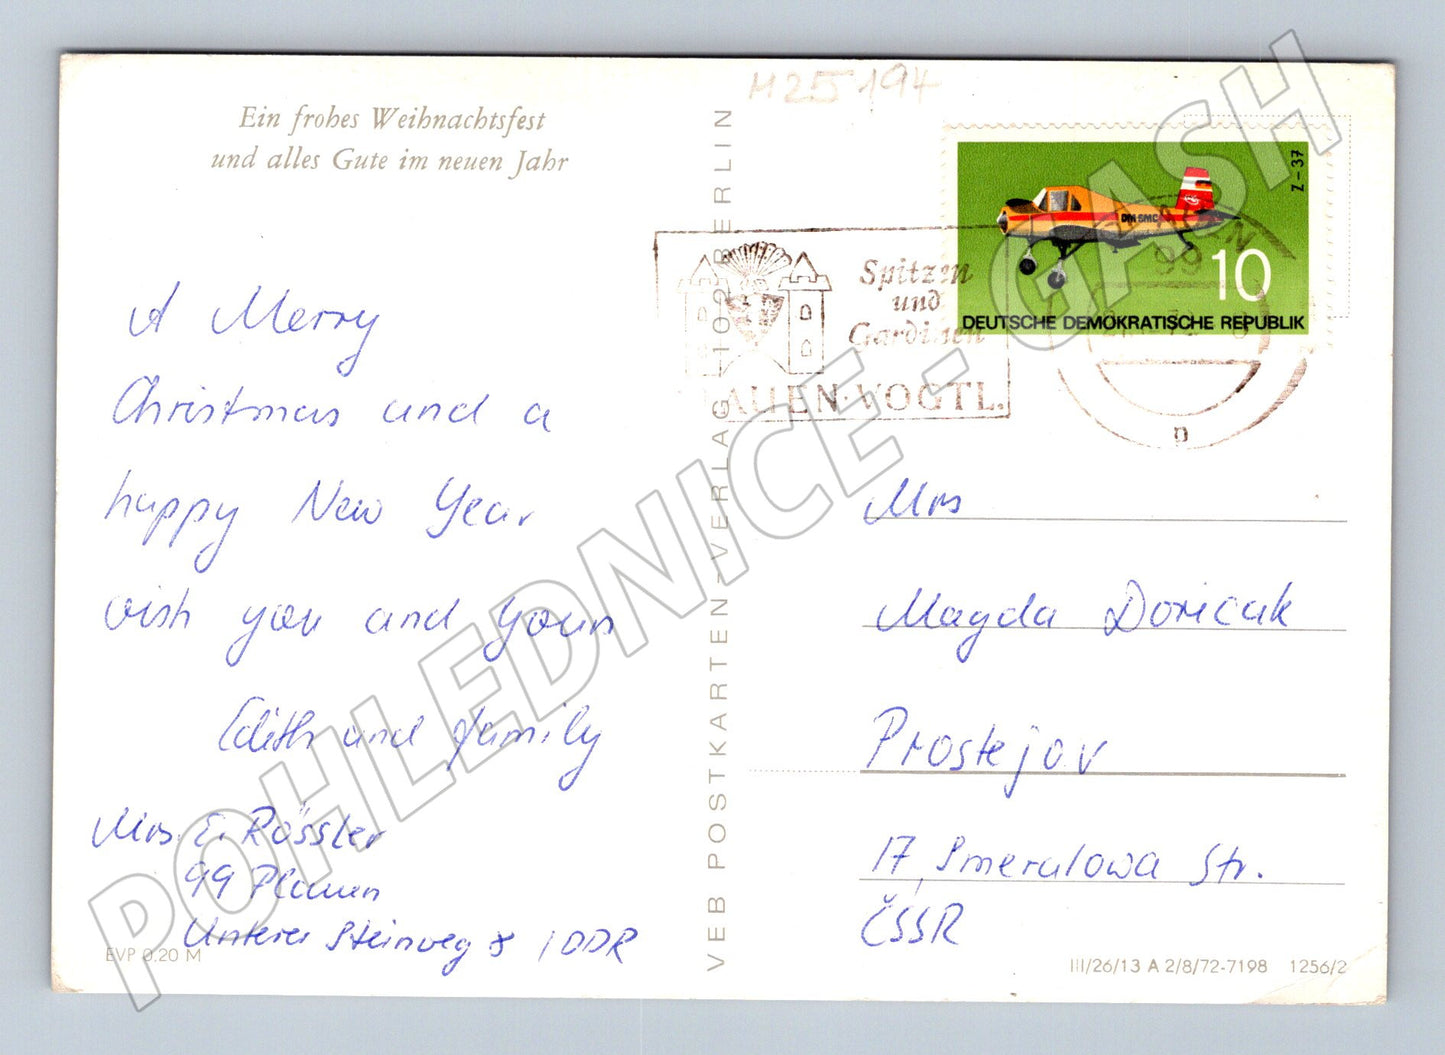 M25194
Ein frohes Weihnachtsfest
und alles Gute im neuen Jahr
A Merry
Christmas and a
happy New Year
wish you and yours
Edith and family
Mrs. E. Rössler
99 Plauen
Unterer Steinweg 8 / DDR
EVP 0.20 M
VEB POSTKARTEN-VERLAG 102 BERLIN
Z-37
DM-SMC
10
DEUTSCHE DEMOKRATISCHE REPUBLIK
Spitzen
und
Gardinen
PLAUEN·VOGTL.
PLAUEN
99
n
Mrs
Magda Doricak
Prostejov
17, Smeralowa Str.
ČSSR
III/26/13 A 2/8/72-7198 1256/2
POHLEDNICE - GASH